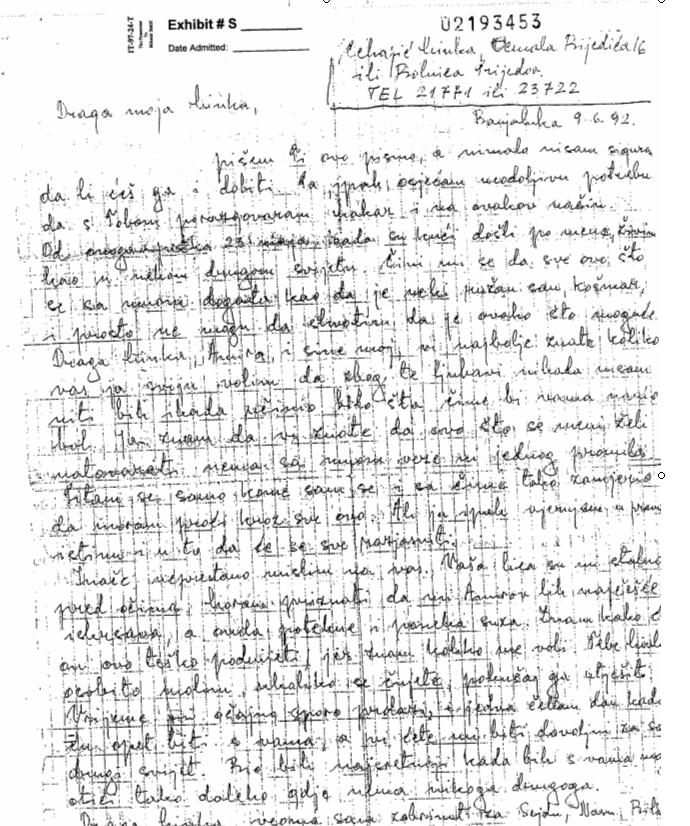 IT-97-24-T
Exhibit # S
Date Admitted:
02193453
Čehajić Minka, Džemala Bijedića 16
ili Bolnica Prijedor.
TEL 21771 ili 23722
Draga moja Minka,
Banjaluka 9.6.92.
pišem ti ovo pismo, a nimalo nisam sigura
da li ćeš ga i dobiti. Pa ipak, osjećam neodoljivu potrebu
da s Tobom porazgovaram makar i na ovakav način.
Od 23. maja, kada su kući došli po mene, živim
kao u nekom drugom svijetu. Čini mi se da sve ovo što
se sa mnom događa kao da je neki ružan san, košmar,
i prosto ne mogu da shvatim da je ovako što moguće
Draga Minka, Amira, i sine moj, vi najbolje znate koliko
vas ja sviju volim da zbog te ljubavi nikada nisam
niti bih ikada učinio bilo šta čime bi vama nanio
bol. Ja znam da vi znate da ovo što se meni želi
natovariti nema sa mnom veze ni jednog promila
Pitam se samo kome sam se i sa čime tako zamjerio
da moram proći kroz sve ovo. Ali ja ipak vjerujem u
istinu i u to da će se sve razjasniti.
Inače neprestano mislim na vas. Vaša lica su mi stalno
pred očima. Moram priznati da mi Amirov lik najčešće
iskrsava, a onda potekne i poneka suza. Znam kako ć
on ovo teško podnijeti, jer znam koliko me voli. Tebe
osobito molim, ukoliko se možete, pokušaj ga utješit
Vrijeme mi očajno sporo prolazi, i jedva čekam dan kada
ću opet biti s vama, a vi ćete mi biti dovoljni za s
drugi svijet. Bio bih najsretniji kada bih s vama
otići tako daleko gdje nema nikoga drugoga.
Draga Minka, veoma sam zabrinut za Sejdu, Naru,